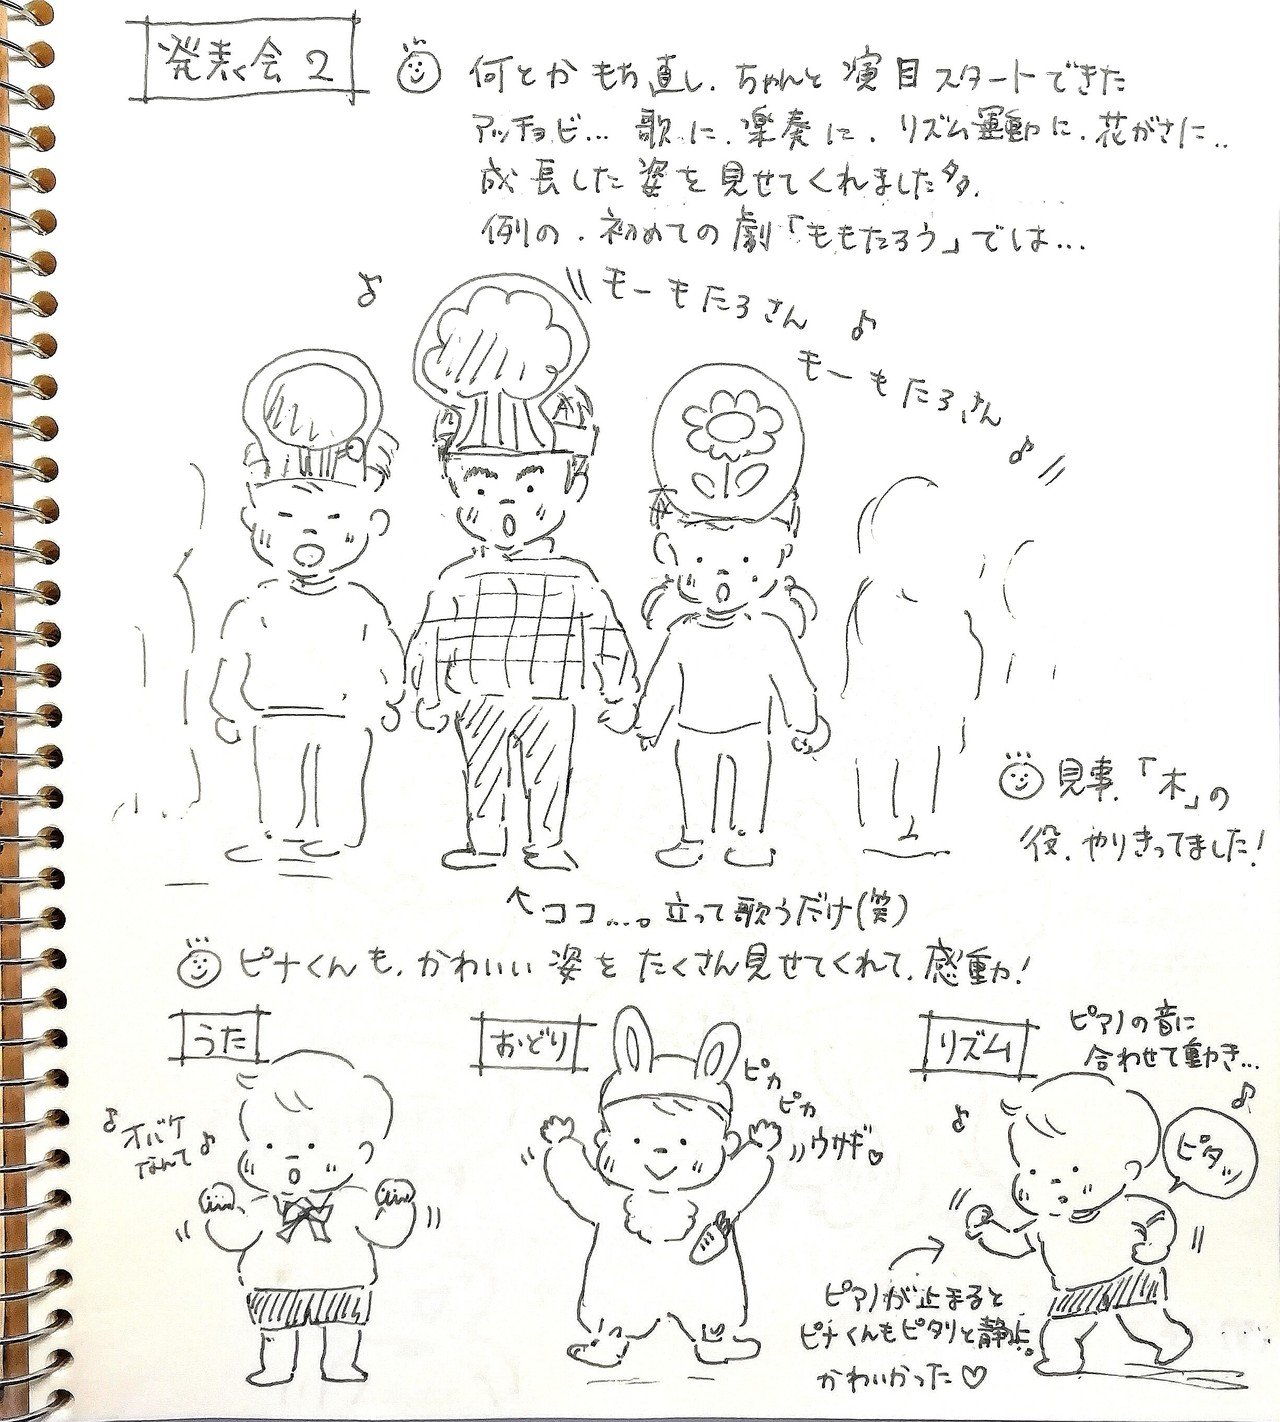 発表会2
何とか もち直し、ちゃんと 演目スタートできた
アッチョビ… 歌に、楽奏に、リズム運動に、花がさに..
成長した 姿を 見せてくれました
例の、初めての 劇「ももたろう」では…
♪ 〃モーもたろさん ♪
モーもたろさん ♪〃
見事、「木」の
役、やりきってました!
↑ココ…。立って歌うだけ(笑)
ピナくんも、かわいい 姿を たくさん見せてくれて、感動!
うた
♪オバケ
なんて♪
おどり
ピカ
ピカ
ウサギ♡
リズム
ピアノの音に
合わせて動き…
♪
♪
ピタッ
ピアノが止まると
ピナくんもピタリと静止。
かわいかった♡